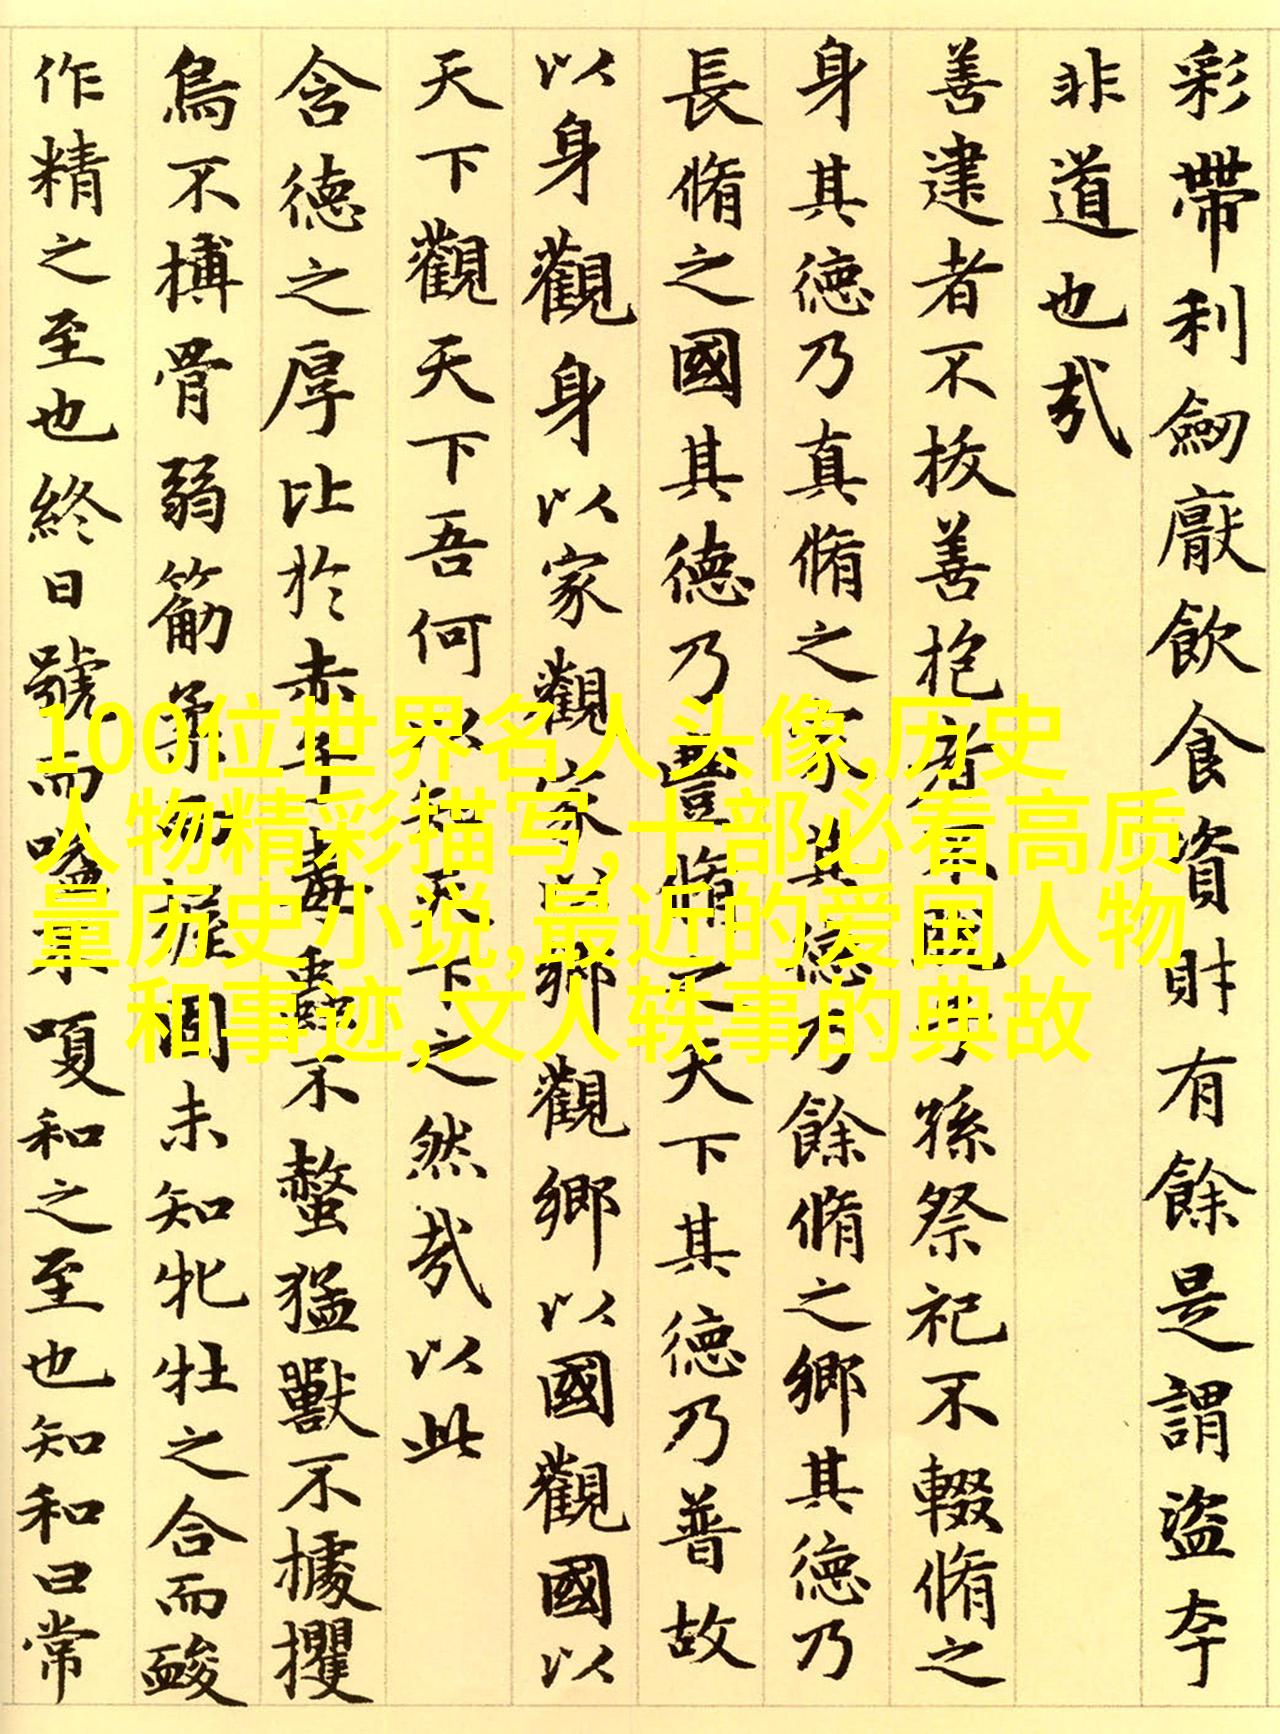 彩帶利劒厭飲食資財有餘是謂盜夸
非道也哉
善建者不拔善抱者不脱子孫祭祀不輟脩之
身其德乃真脩之家其德乃餘脩之鄉其德乃
長脩之國其德乃豐脩之天下其德乃普故
以身觀身以家觀家以鄉觀鄉以國觀國以
天下觀天下吾何以知天下之然哉以此
含德之厚比於赤子毒蟲不螫猛獸不據攫
鳥不搏骨弱筋柔而握固未知牝牡之合而酸
作精之至也終日號而嗌不嗄和之至也知和曰常
100位世界名人头像,历史
人物精彩描写,十部必看高质
量历史小说,最近的爱国人物
和事迹,文人轶事的典故